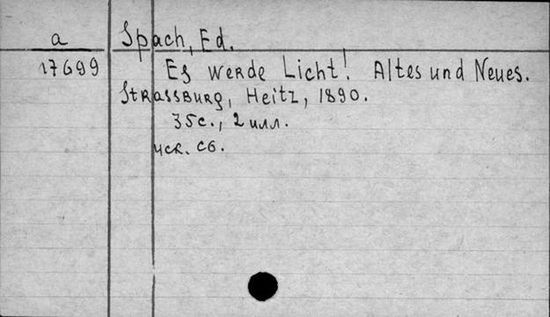 a
17699
Spach, Ed.
Es werde Licht! Altes und Neues.
Strassburg, Heitz, 1890.
35с., 2 илл.
иск. сб.